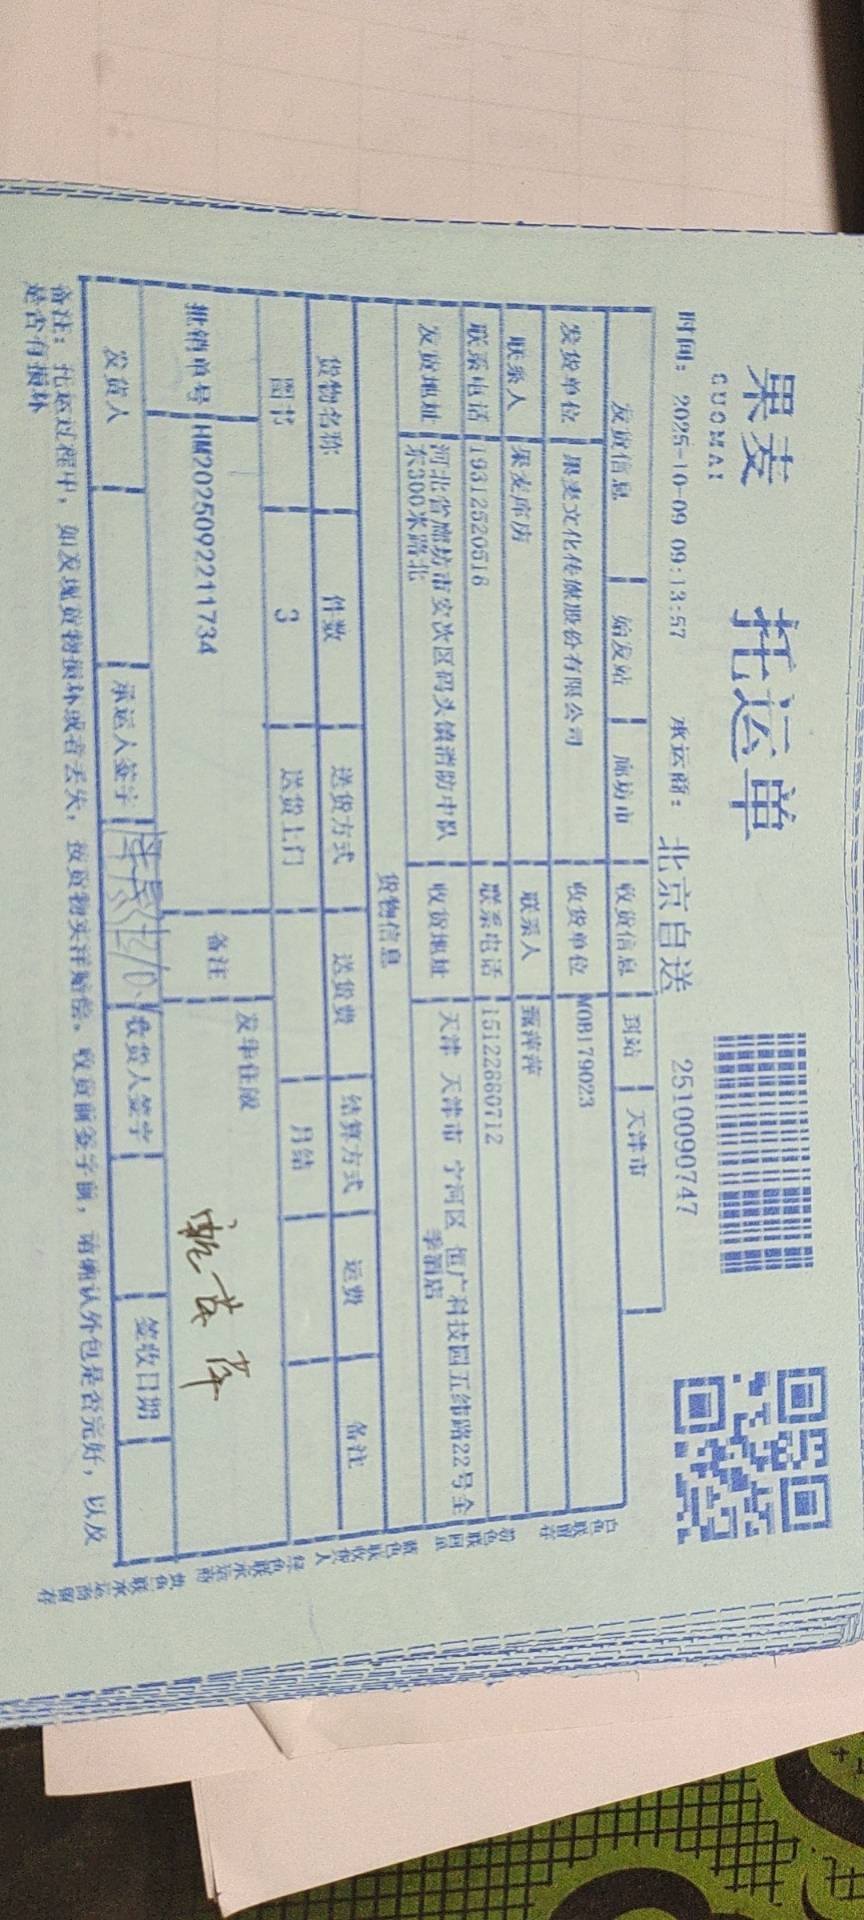 果麦
GUOMAI
托运单
时间：2025-10-09 09:13:57 承运商：北京自送 2510090747
发货信息 始发站 廊坊市 收货信息 到站 天津市
发货单位 果麦文化传媒股份有限公司 收货单位 MOB179023
联系人 果麦库房 联系人 甄萍萍
联系电话 19312520516 联系电话 15122860712
发货地址 河北省廊坊市安次区码头镇消防中队 收货地址 天津 天津市 宁河区 恒广科技园五纬路22号全
东300米路北 季酒店
货物信息
货物名称 件数 送货方式 送货费 结算方式 运费 备注
图书 3 送货上门 月结
批销单号 HM202509221734 备注 发华住版
发货人 承运人签字 收货人签字 签收日期
备注：托运过程中，如发现货物损坏或者丢失，按货物实洋赔偿。收货前签字前，请确认外包是否完好，以及
是否有损坏
白色联留存
粉色联回单
蓝色联收货人
绿色联承运商
黄色联承运商留存